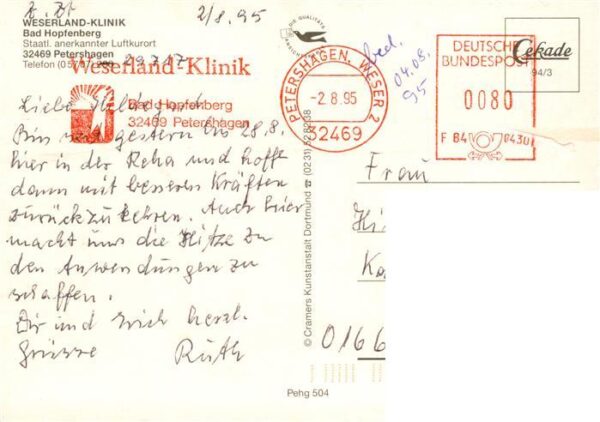 z. Zt. 2/8.95
WESERLAND-KLINIK
Bad Hopfenberg
Staatl. anerkannter Luftkurort
32469 Petershagen
Telefon (05
Weserland-Klinik
Bad Hopfenberg
32469 Petershagen
Liebe
Bin seit gestern bis 28.8.
hier in der Reha und hoffe
dann mit besseren Kräften
zurückzukehren. Auch hier
macht uns die Hitze zu
den Anwendungen zu
schaffen.
Dir und Erich herzl.
Grüsse Ruth
Pehg 504
© Cramers Kunstanstalt Dortmund
DIE QUALITÄTS
PETERSHAGEN, WESER 2
-2.8.95
32469
04.08.
95
DEUTSCHE
BUNDESPOST
0080
F 84 0430
Cekade
94/3
Frau
Hi
Ka
0166